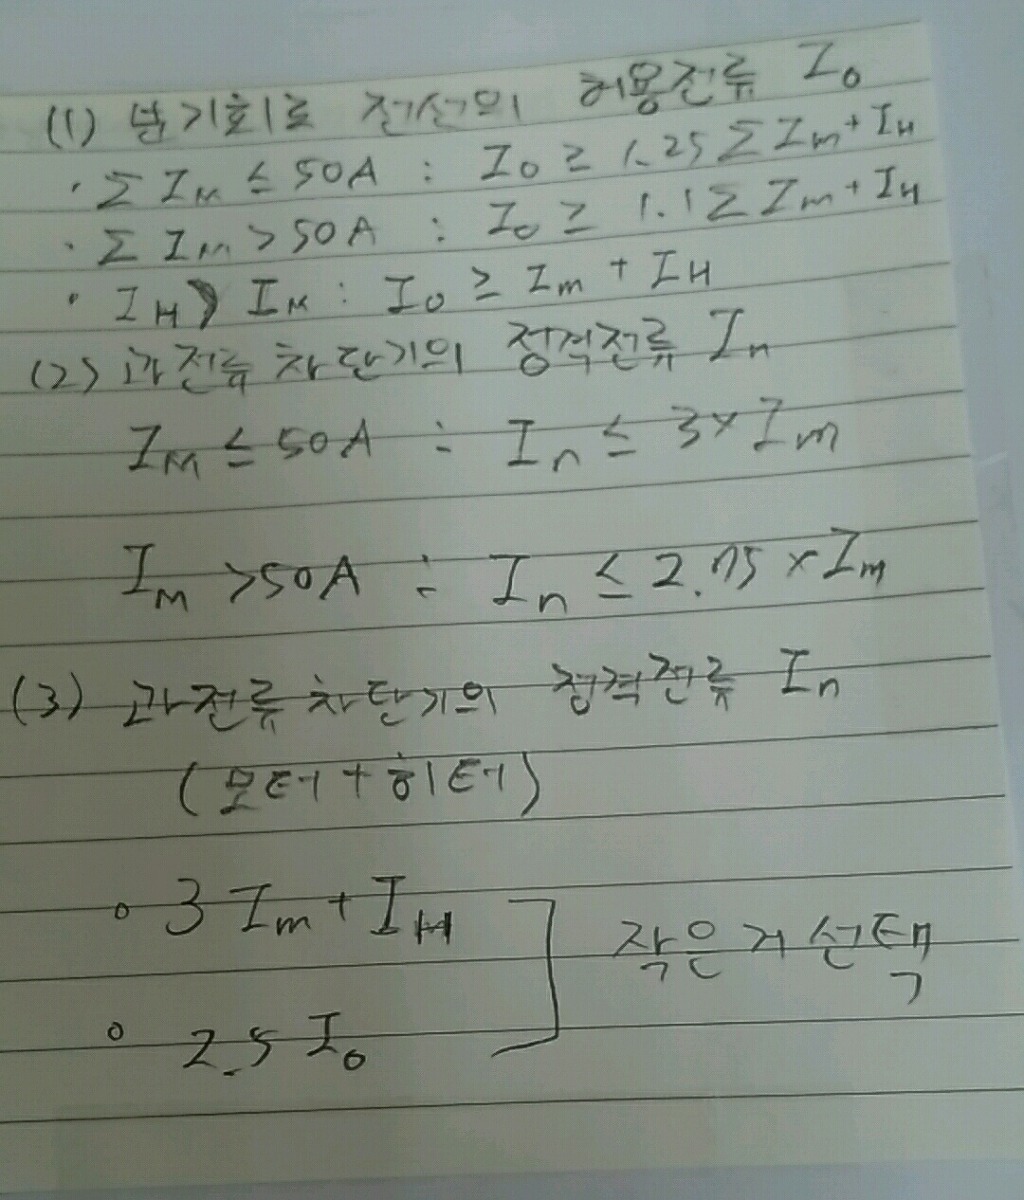 (1) 분기회로 전선의 허용전류 I₀
· Σ I_M ≤ 50A : I₀ ≥ 1.25 Σ I_m + I_H
· Σ I_M > 50A : I₀ ≥ 1.1 Σ I_m + I_H
· I_H > I_M : I₀ ≥ I_m + I_H
(2) 과전류 차단기의 정격전류 I_n
I_M ≤ 50A : I_n ≤ 3 × I_m
I_M > 50A : I_n ≤ 2.75 × I_m
(3) 과전류 차단기의 정격전류 I_n
(모터 + 히터)
∘ 3 I_m + I_H
작은거 선택
∘ 2.5 I₀